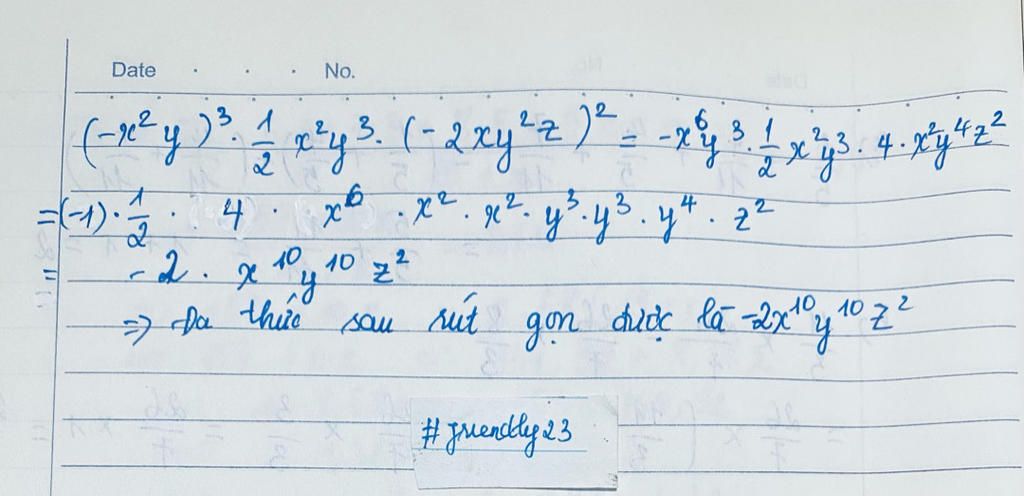 Date . . . No.
(-x²y)³ · 1/2 x²y³ · (-2xy²z)² = -x⁶y³ · 1/2 x²y³ · 4 · x²y⁴z²
= (-1) · 1/2 · 4 · x⁶ · x² · x² · y³ · y³ · y⁴ · z²
= -2 · x¹⁰y¹⁰z²
=> Đa thức sau rút gọn được là -2x¹⁰y¹⁰z²
#friendly23